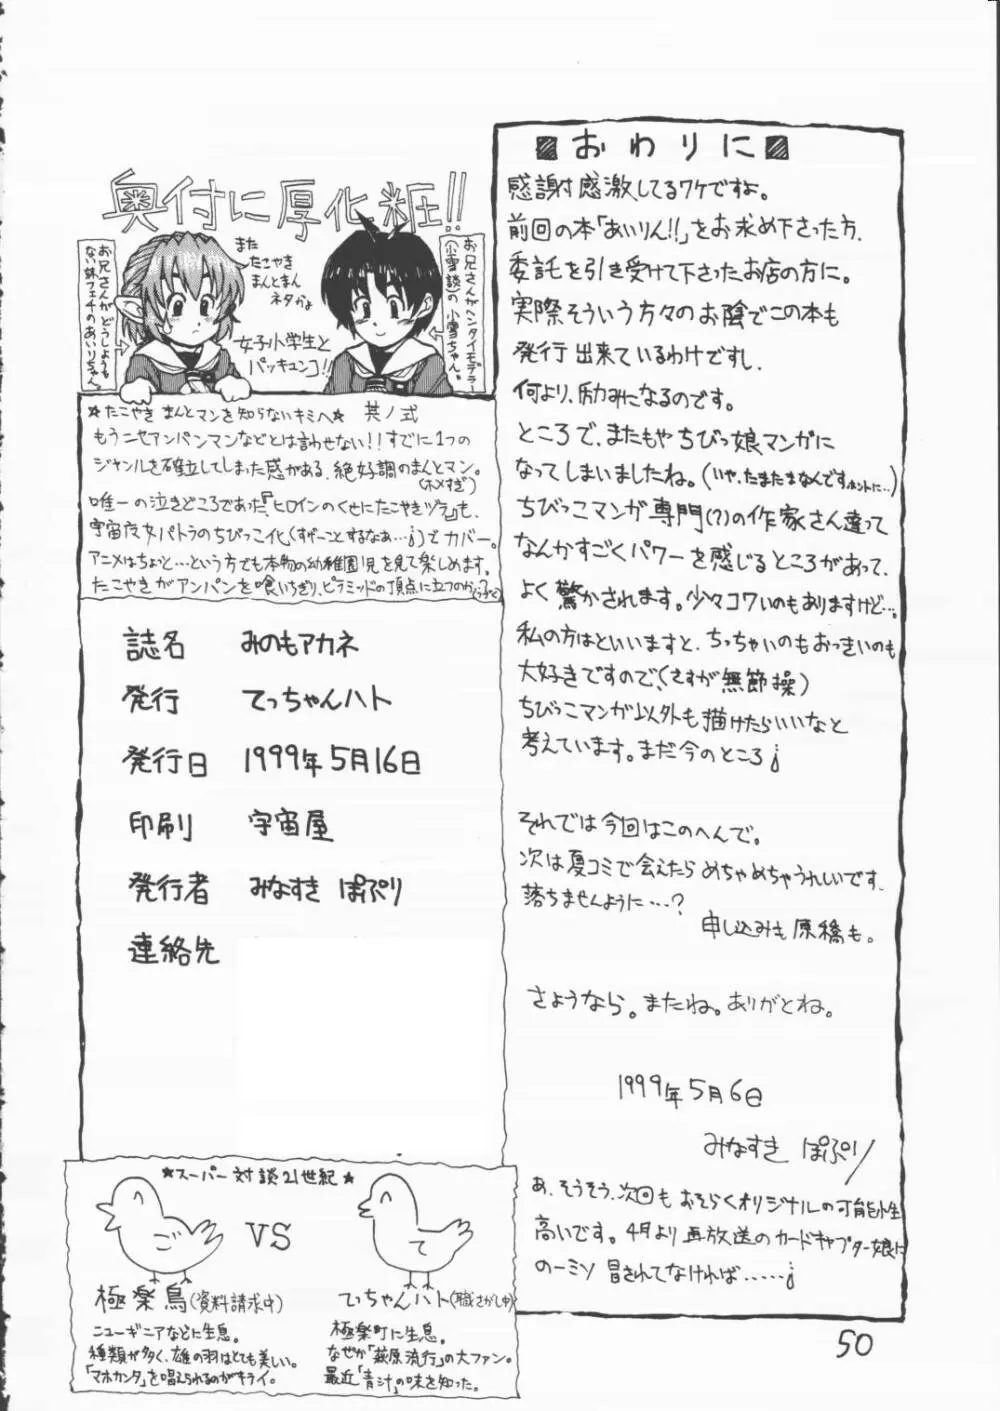 ■おわりに■
感謝感激してるワケですよ。
前回の本「あいりん!!」をお求め下さった方、
委託を引き受けて下さったお店の方に。
実際そういう方々のお陰でこの本も
発行出来ているわけですし、
何より、励みになるのです。
ところで、またもやちびっ娘マンガに
なってしまいましたね。(いや、たまたまなんですホントに…)
ちびっこマンガ専門(?)の作家さん達って
なんかすごくパワーを感じるところがあって、
よく驚かされます。少々コワいのもありますけど…。
私の方はといいますと、ちっちゃいのもおっきいのも
大好きですので、(さすが無節操)
ちびっこマンガ以外も描けたらいいなと
考えています。まだ今のところ
それでは今回はこのへんで。
次は夏コミで会えたらめちゃめちゃうれしいです、
落ちませんように…?
申し込みも原稿も。
さようなら。またね。ありがとね。
1999年5月6日
みなすき ぽぷり
あ、そうそう、次回もおそらくオリジナルの可能性
高いです。4月より再放送のカードキャプター娘に
のーミソ冒されてなければ……
奥付に厚化粧!!
お兄さんがどうしようも
ない妹フェチのあいりちゃん。
また
たこやき
まんとまん
ネタかよ
女子小学生と
バッキュンコ!!
お兄さんがヘンタイモデラー
(小雪談)の小雪ちゃん。
☆たこやきまんとマンを知らないキミへ★ 其ノ弐
もうニセアンパンマンなどとは言わせない!!すでに1つの
ジャンルを確立してしまった感がある、絶好調のまんとマン。
(ホメすぎ)
唯一の泣きどころであった『ヒロインのくせにたこやきヅラ』も、
宇宙少女パトラのちびっこ化(すげーことするなぁ…)でカバー。
アニメはちょっと…という方でも本物の幼稚園児を見て楽しめます。
たこやきがアンパンを喰いちぎり、ピラミッドの頂点に立つのか
誌名 みのもアカネ
発行 てっちゃんハト
発行日 1999年5月16日
印刷 宇宙屋
発行者 みなすき ぽぷり
連絡先
★スーパー対談21世紀★
ご
VS
て
極楽鳥(資料請求中)
ニューギニアなどに生息。
種類が多く、雄の羽はとても美しい。
「マホカンタ」を唱えられるのがキライ。
てっちゃんハト(職さがし中)
極楽町に生息。
なぜか「萩原流行」の大ファン。
最近「青汁」の味を知った。
50